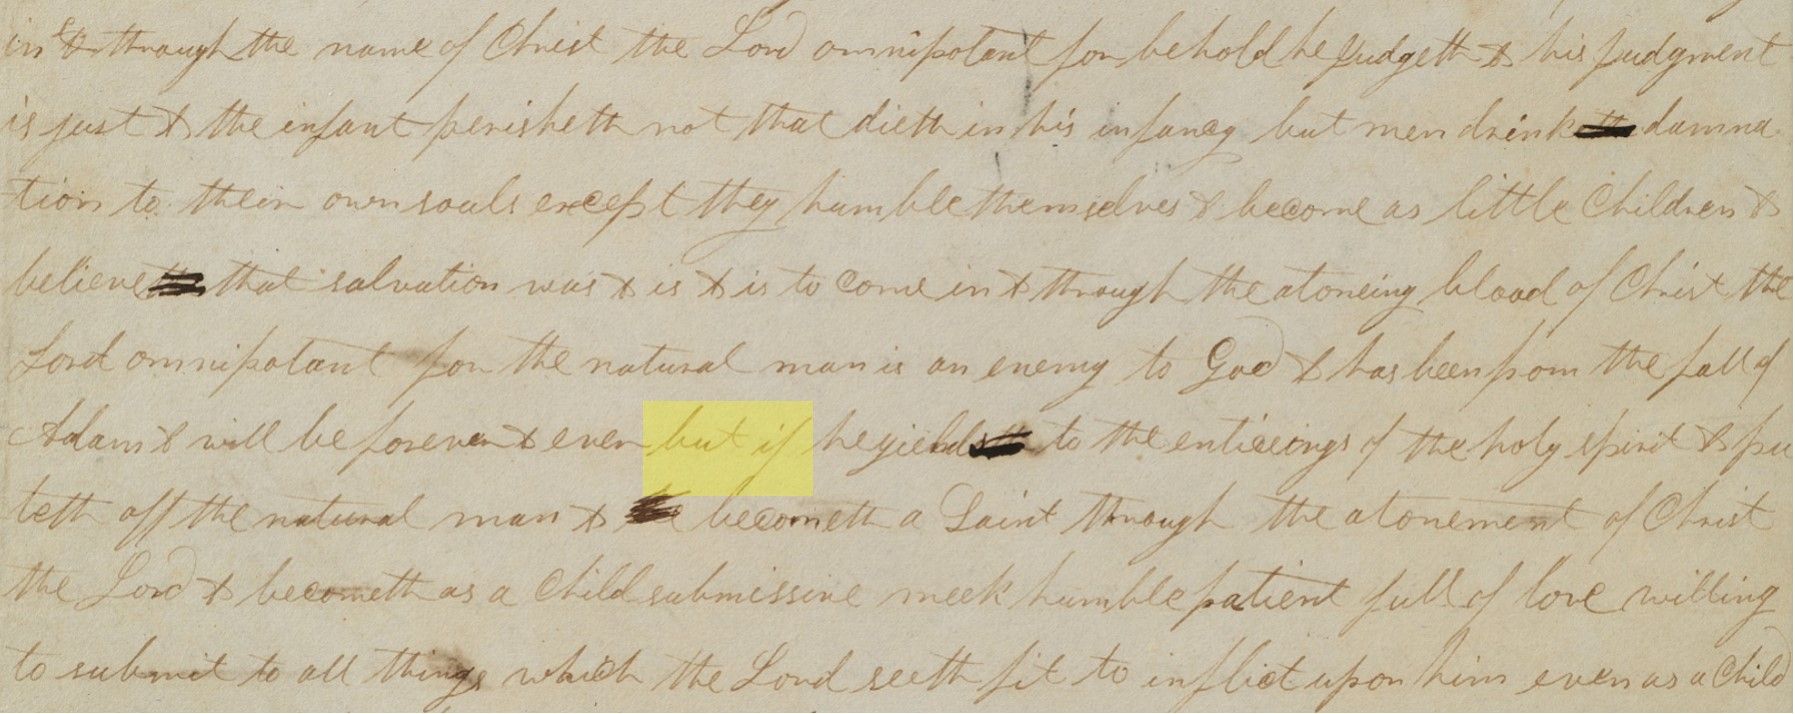 in & through the name of Christ the Lord omnipotent for behold he Judgeth & his judgment
is just & the infant perisheth not that dieth in his infancy but men drinketh damna
tion to their own souls except they humble themselves & become as little Children &
believeth that salvation was & is & is to Come in & through the atoneing blood of Christ the
Lord omnipotant for the natural man is an enemy to God & has been from the fall of
Adam & will be forever & ever but if he yieldeth to the enticeings of the holy spirit & pu
teth off the natural man & becometh a Saint through the atonement of Christ
the Lord & becometh as a Child submissive meek humble patient full of love willing
to submit to all things which the Lord seeth fit to inflict upon him even as a Child